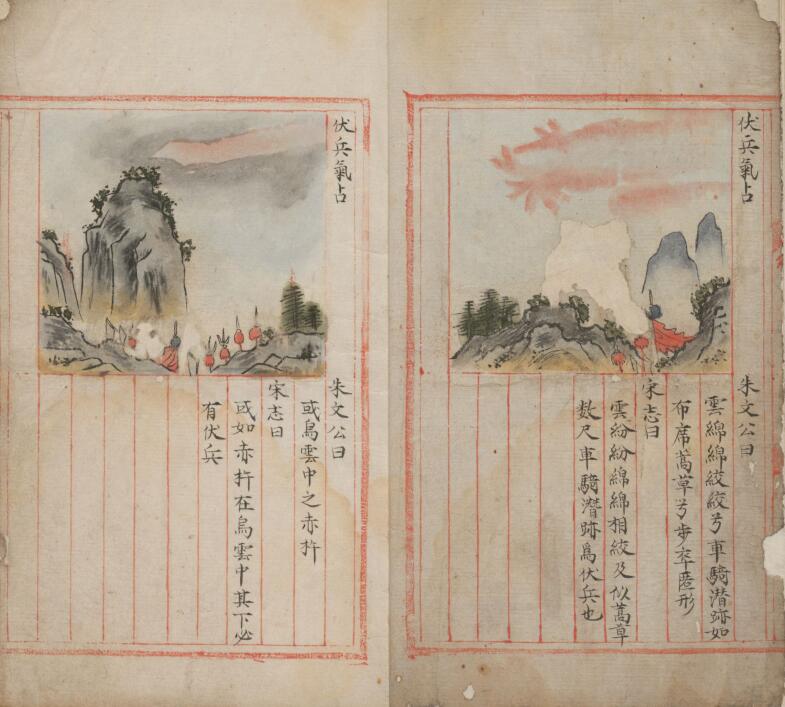 伏兵氣占
朱文公曰
雲綿綿絞絞兮車騎潜跡如
布席蒿草兮步卒匿形
宋志曰
雲紛紛綿綿相絞及似蒿草
数尺車騎潛跡爲伏兵也
伏兵氣占
朱文公曰
或烏雲中之赤杵
宋志曰
或如赤杵在烏雲中其下必
有伏兵